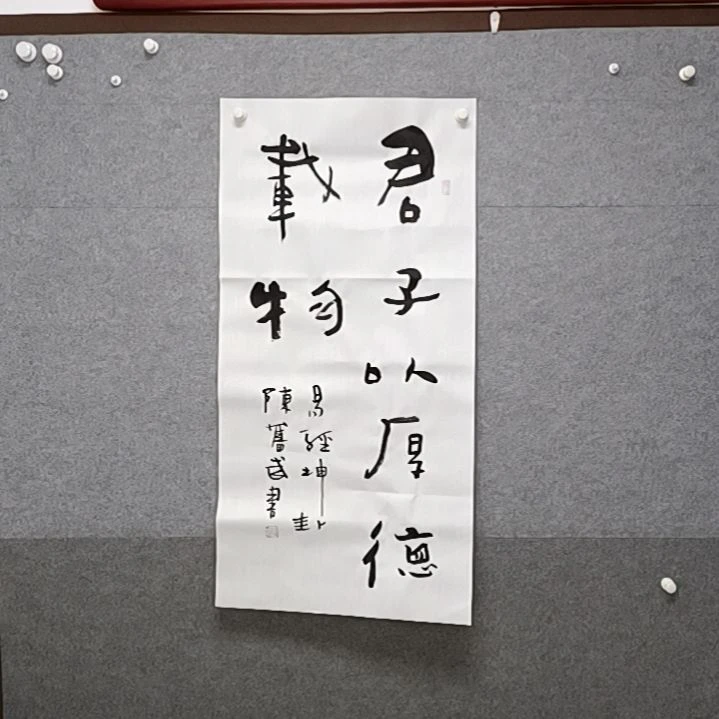 君子以厚德
載物
易經坤卦
陳舊武書